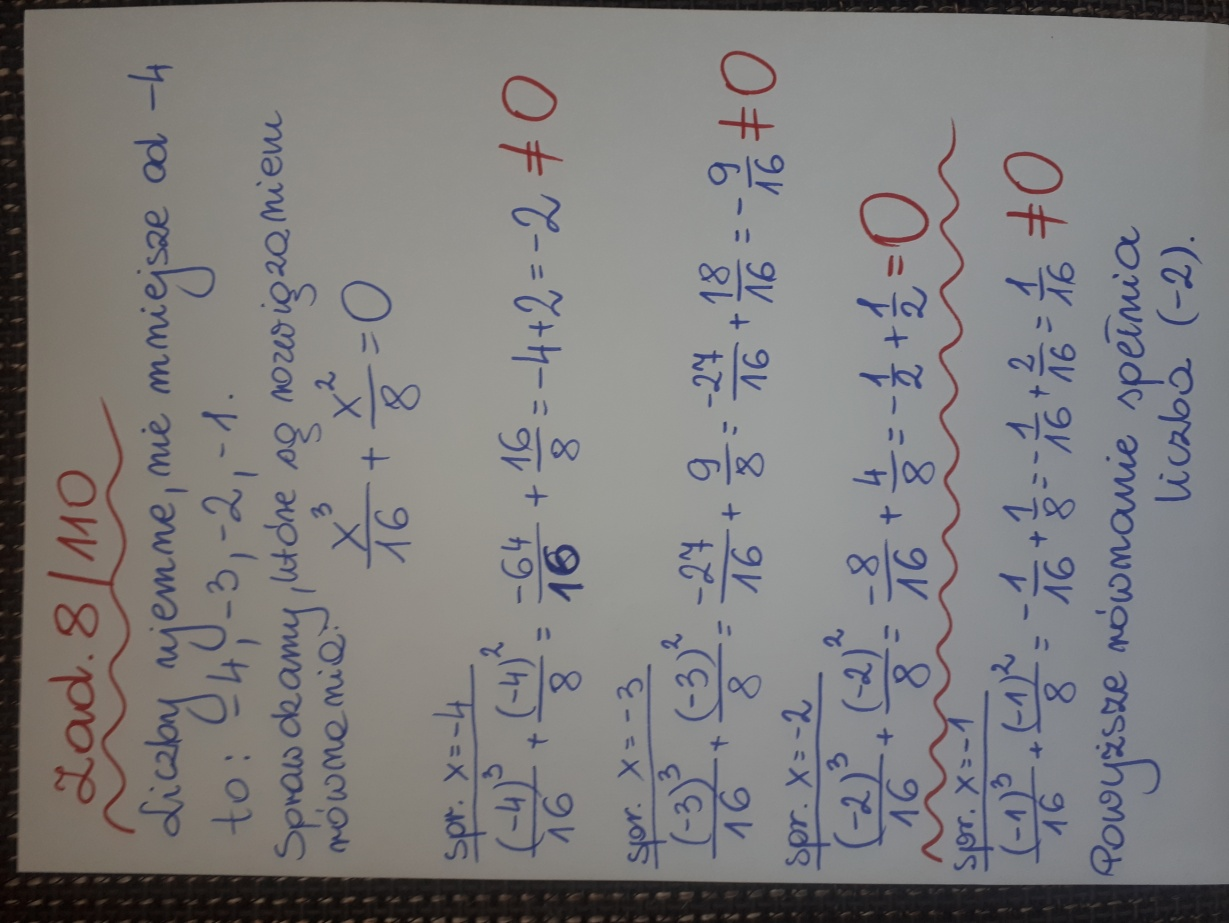 Zad. 8/110
Liczby ujemne, nie mniejsze od -4
to: -4, -3, -2, -1.
Sprawdzamy, które są rozwiązaniem
równania:
x³/16 + x²/8 = 0
Spr. x = -4
(-4)³/16 + (-4)²/8 = -64/16 + 16/8 = -4 + 2 = -2 ≠ 0
Spr. x = -3
(-3)³/16 + (-3)²/8 = -27/16 + 9/8 = -27/16 + 18/16 = -9/16 ≠ 0
Spr. x = -2
(-2)³/16 + (-2)²/8 = -8/16 + 4/8 = -1/2 + 1/2 = 0
Spr. x = -1
(-1)³/16 + (-1)²/8 = -1/16 + 1/8 = -1/16 + 2/16 = 1/16 ≠ 0
Powyższe równanie spełnia
liczba (-2).